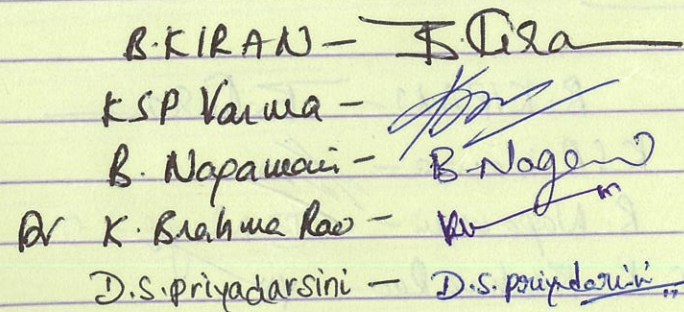 B. KIRAN - B. Kiran
KSP Varma -
B. Nagamani - B. Nagam
Dr K. Brahma Rao -
D.S. priyadarsini - D.S. priyadarsini